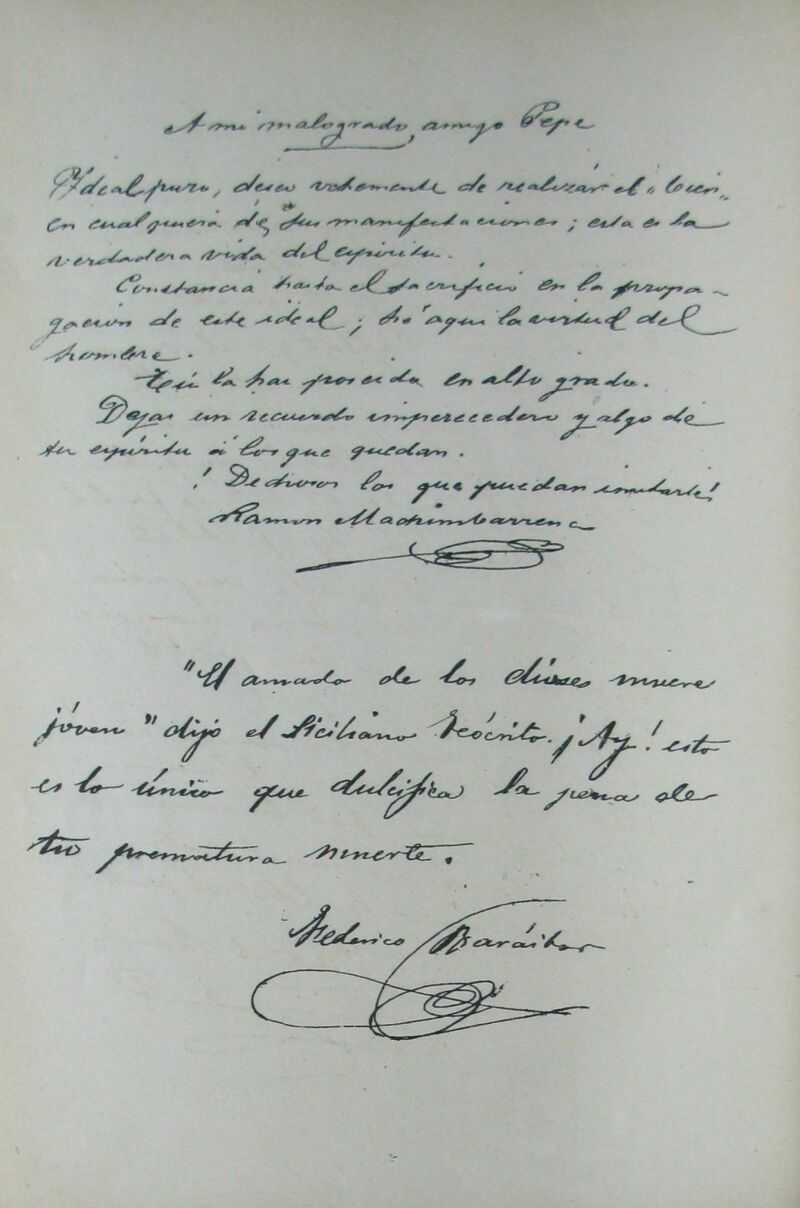 A mi malogrado, amigo Pepe
Ideal puro, deseo vehemente de realizár el "bien"
en cualquiera de sus manifestaciones; esta es la
verdadera vida del espíritu.
Constancia hasta el sacrificio en la propa-
gación de este ideal; hé aqui la virtud del
hombre.
Tú la has poseida en alto grado.
Dejas un recuerdo imperecedero y algo de
tu espíritu á los que quedan.
! Dichosos los que puedan imitarte!
Ramon Machimbarrena
"El amado de los dioses muere
jóven" dijo el Siciliano Teócrito. ¡Ay! esto
es lo único que dulcifica la pena de
tu prematura muerte.
Federico Baráibar